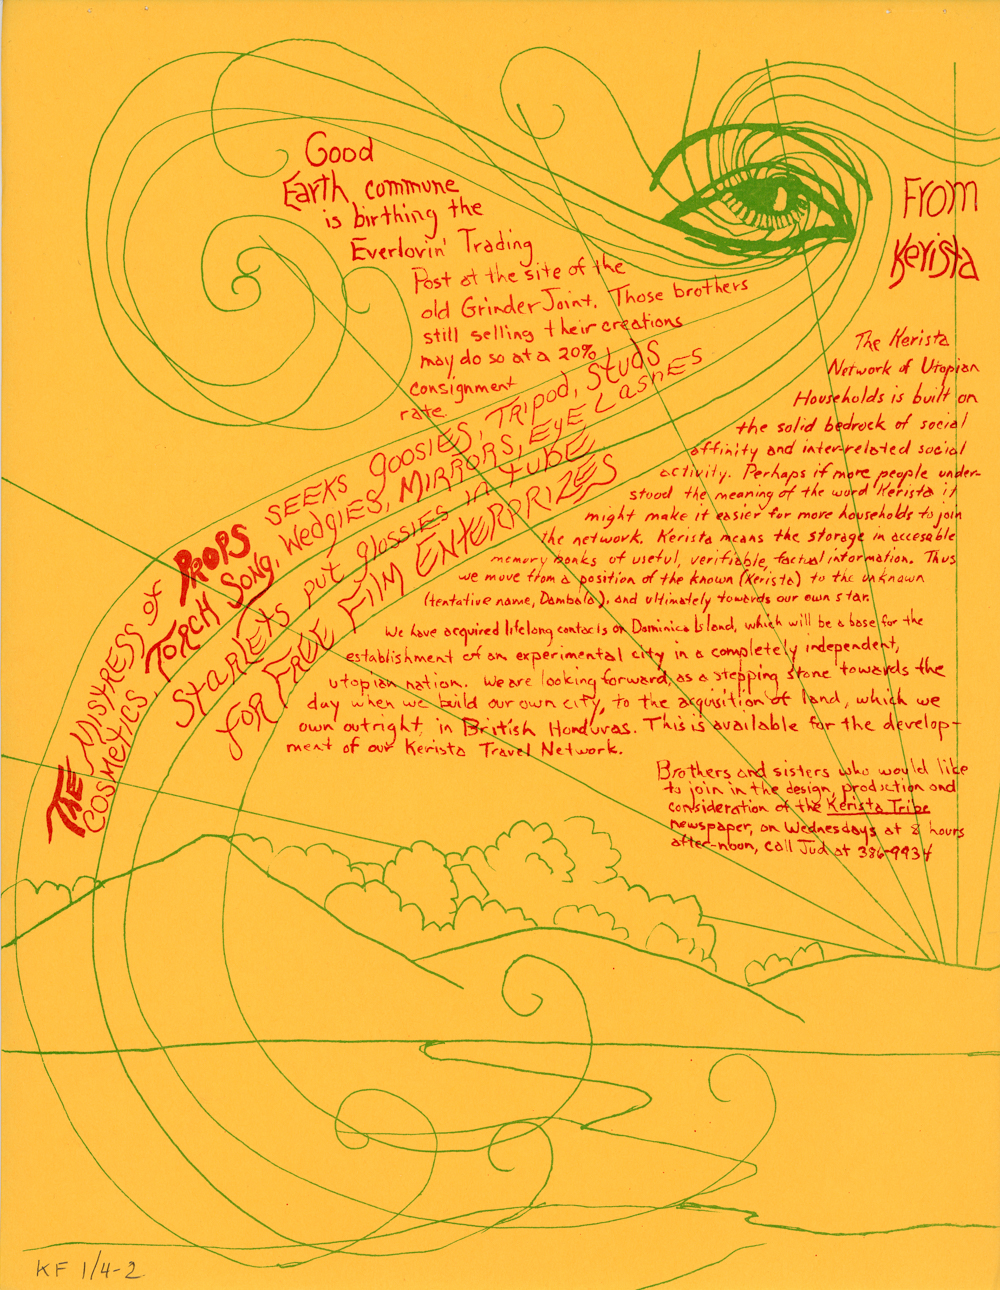 Good
Earth commune
is birthing the
Everlovin' Trading
Post at the site of the
old Grinder Joint. Those brothers
still selling their creations
may do so at a 20%
consignment
rate.
THE MISTRESS of PROPS SEEKS goosies, TRipod, Studs
COSMETICS, TORCH SONG, Wedgies, MIRRORS, EyE LasHES
StaRLEtS put glossies in tubE
foR FREE FilM ENtERPRIZES
From
Kerista
The Kerista
Network of Utopian
Households is built on
the solid bedrock of social
affinity and inter-related social
activity. Perhaps if more people under-
stood the meaning of the word Kerista it
might make it easier for more households to join
the network. Kerista means the storage in accesable
memory banks of useful, verifiable, factual information. Thus
we move from a position of the known (Kerista) to the unknown
(tentative name, Dambala), and ultimately towards our own star.
We have acquired lifelong contacts on Dominica Island, which will be a base for the
establishment of an experimental city in a completely independent,
utopian nation. We are looking forward, as a stepping stone towards the
day when we build our own city, to the acquisition of land, which we
own outright, in British Honduras. This is available for the develop-
ment of our Kerista Travel Network.
Brothers and sisters who would like
to join in the design, production and
consideration of the Kerista Tribe
newspaper, on Wednesdays at 8 hours
after-noon, call Jud at 386-9934
KF 1/4-2